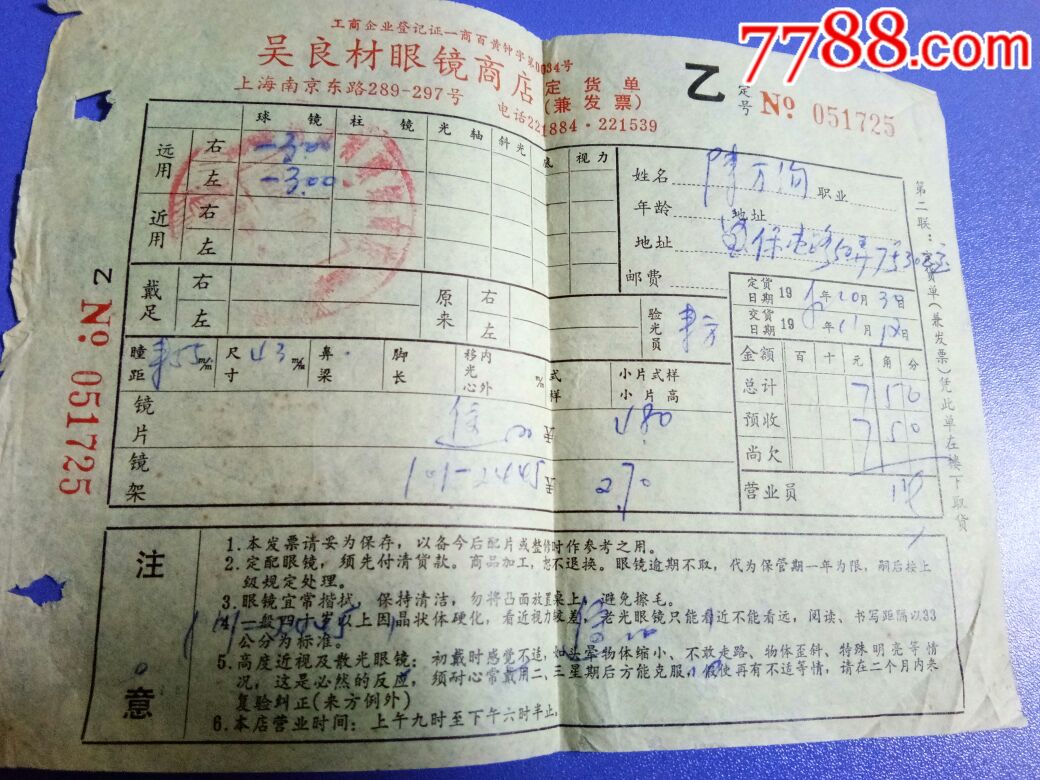 7788.com
工商企业登记证一商百黄钟字第0634号
吴良材眼镜商店
定货单
(兼发票)
乙
定号 No 051725
上海南京东路289-297号
电话221884·221539
球镜 柱镜 光轴 斜光 底 视力
远用 右 -3.00
左 -3.00
近用 右
左
戴足 右
左
原来 右
左
姓名 职业
年龄 地址
地址
邮费
验光员
定货日期 19 年10月3日
交货日期 19 年11月 日
瞳距 55 m/m 尺寸 43 m/m 鼻梁 脚长 移光心 内外 m/m 式样 小片式样
小片高
金额 百 十 元 角 分
总计 7 5 0
预收 7 5 0
尚欠
营业员
镜片 480
镜架 101-2445 270
第二联:
单(兼发票)凭此单在楼下取货
N No. 051725
注意
1.本发票请妥为保存,以备今后配片或整修时作参考之用。
2.定配眼镜,须先付清货款。商品加工,恕不退换。眼镜逾期不取,代为保管期一年为限,嗣后按上
级规定处理。
3.眼镜宜常揩拭,保持清洁,勿将凸面放置桌上,避免擦毛。
4.一般四十岁以上因晶状体硬化,看近视力较差,老光眼镜只能看近不能看远,阅读、书写距隔以33
公分为标准。
5.高度近视及散光眼镜:初戴时感觉不适,如头晕物体缩小、不敢走路、物体歪斜、特殊明亮等情
况,这是必然的反应,须耐心常戴用二、三星期后方能克服,假使再有不适等情,请在二个月内来
复验纠正(来方例外)
6.本店营业时间:上午九时至下午六时半止。